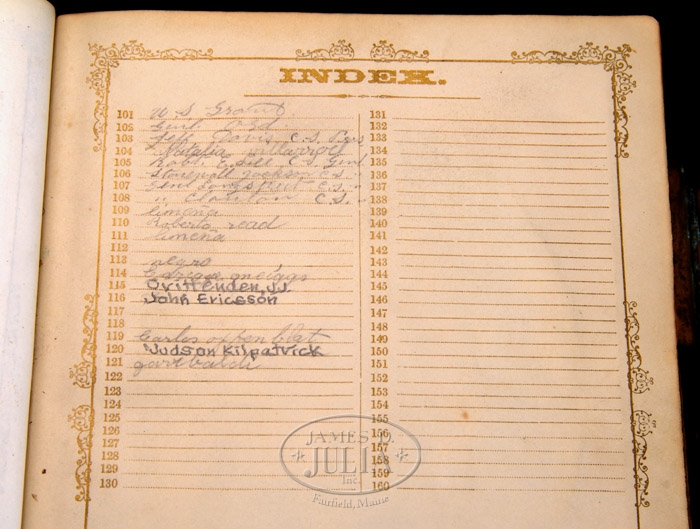 INDEX.
101 U S Grant
102 Genl.
103 Jeff. Davis C.S. Pres
104 Natalia
105 Robt. E. Lee C.S. Genl
106 Stonewall Jackson C.S. "
107 Genl Longstreet C.S. "
108 " C.S. "
109 limeña
110 Roberto read
111 limeña
112
113 negro
114 Enrique meiggs
115 Crittenden, J.J.
116 John Ericsson
117
118
119 Carlos
120 Judson Kilpatrick
121 garibaldi
122
123
124
125
126
127
128
129
130
131
132
133
134
135
136
137
138
139
140
141
142
143
144
145
146
147
148
149
150
151
152
153
154
155
156
157
158
159
160
JAMES D.
JULIA
Inc.
Fairfield, Maine